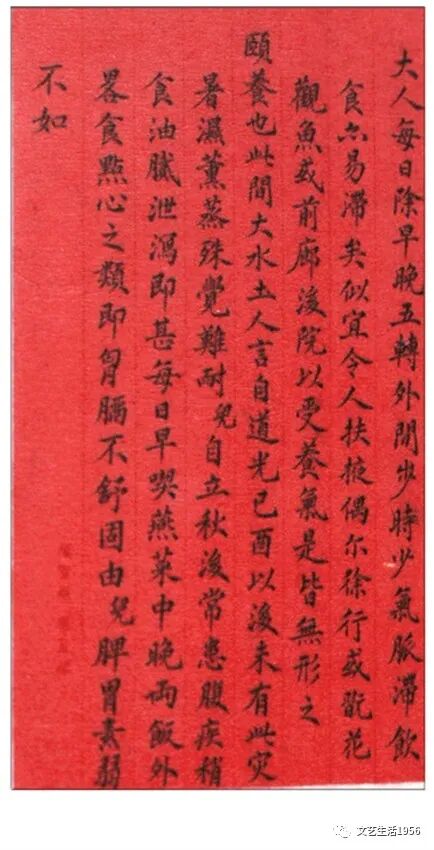 大人每日除早晚五轉外閒步時少氣脈滯飲
食亦易滯矣似宜令人扶掖偶尔徐行或翫花
觀魚或前廊後院以受養氣是皆無形之
頤養也此間大水土人言自道光己酉以後未有此灾
暑濕薰蒸殊覺難耐兒自立秋後常患腹疾稍
食油膩泄瀉即甚每日早喫燕菜中晚兩飯外
畧食點心之類即胃膈不舒固由兒脾胃素弱
不如
文艺生活1956